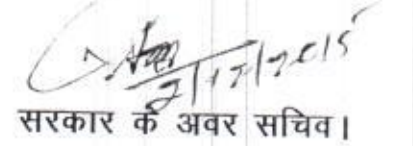 2/12/2015
सरकार के अवर सचिव।